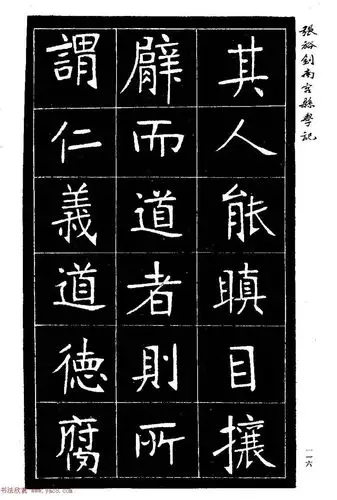 張裕釗南宮縣學記
其人能瞋目攘
臂而道者則所
謂仁義道德腐
一一六
书法欣赏 www.yac8.com